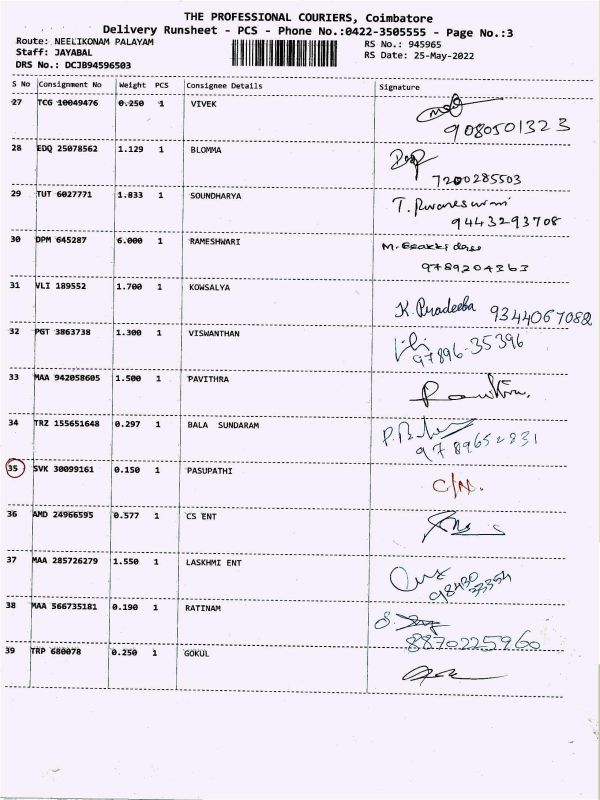 THE PROFESSIONAL COURIERS, Coimbatore
Delivery Runsheet - PCS - Phone No.:0422-3505555 - Page No.:3
Route: NEELIKONAM PALAYAM
RS No.: 945965
Staff: JAYABAL
RS Date: 25-May-2022
DRS No.: DCJB94596503
S No Consignment No Weight PCS Consignee Details Signature
27 TCG 10049476 0.250 1 VIVEK
9080501323
28 EDQ 25078562 1.129 1 BLOMMA
7200285503
29 TUT 6027771 1.833 1 SOUNDHARYA
9443293708
30 DPM 645287 6.000 1 RAMESHWARI
9789204363
31 VLI 189552 1.700 1 KOWSALYA
K. Pradeeba 9344067082
32 PGT 3863738 1.300 1 VISWANTHAN
97896-35396
33 MAA 942058605 1.500 1 PAVITHRA
34 TRZ 155651648 0.297 1 BALA SUNDARAM
35 SVK 30099161 0.150 1 PASUPATHI
C/N.
36 AMD 24966595 0.577 1 CS ENT
37 MAA 285726279 1.550 1 LASKHMI ENT
98430
38 MAA 566735181 0.190 1 RATINAM
8870225960
39 TRP 680078 0.250 1 GOKUL